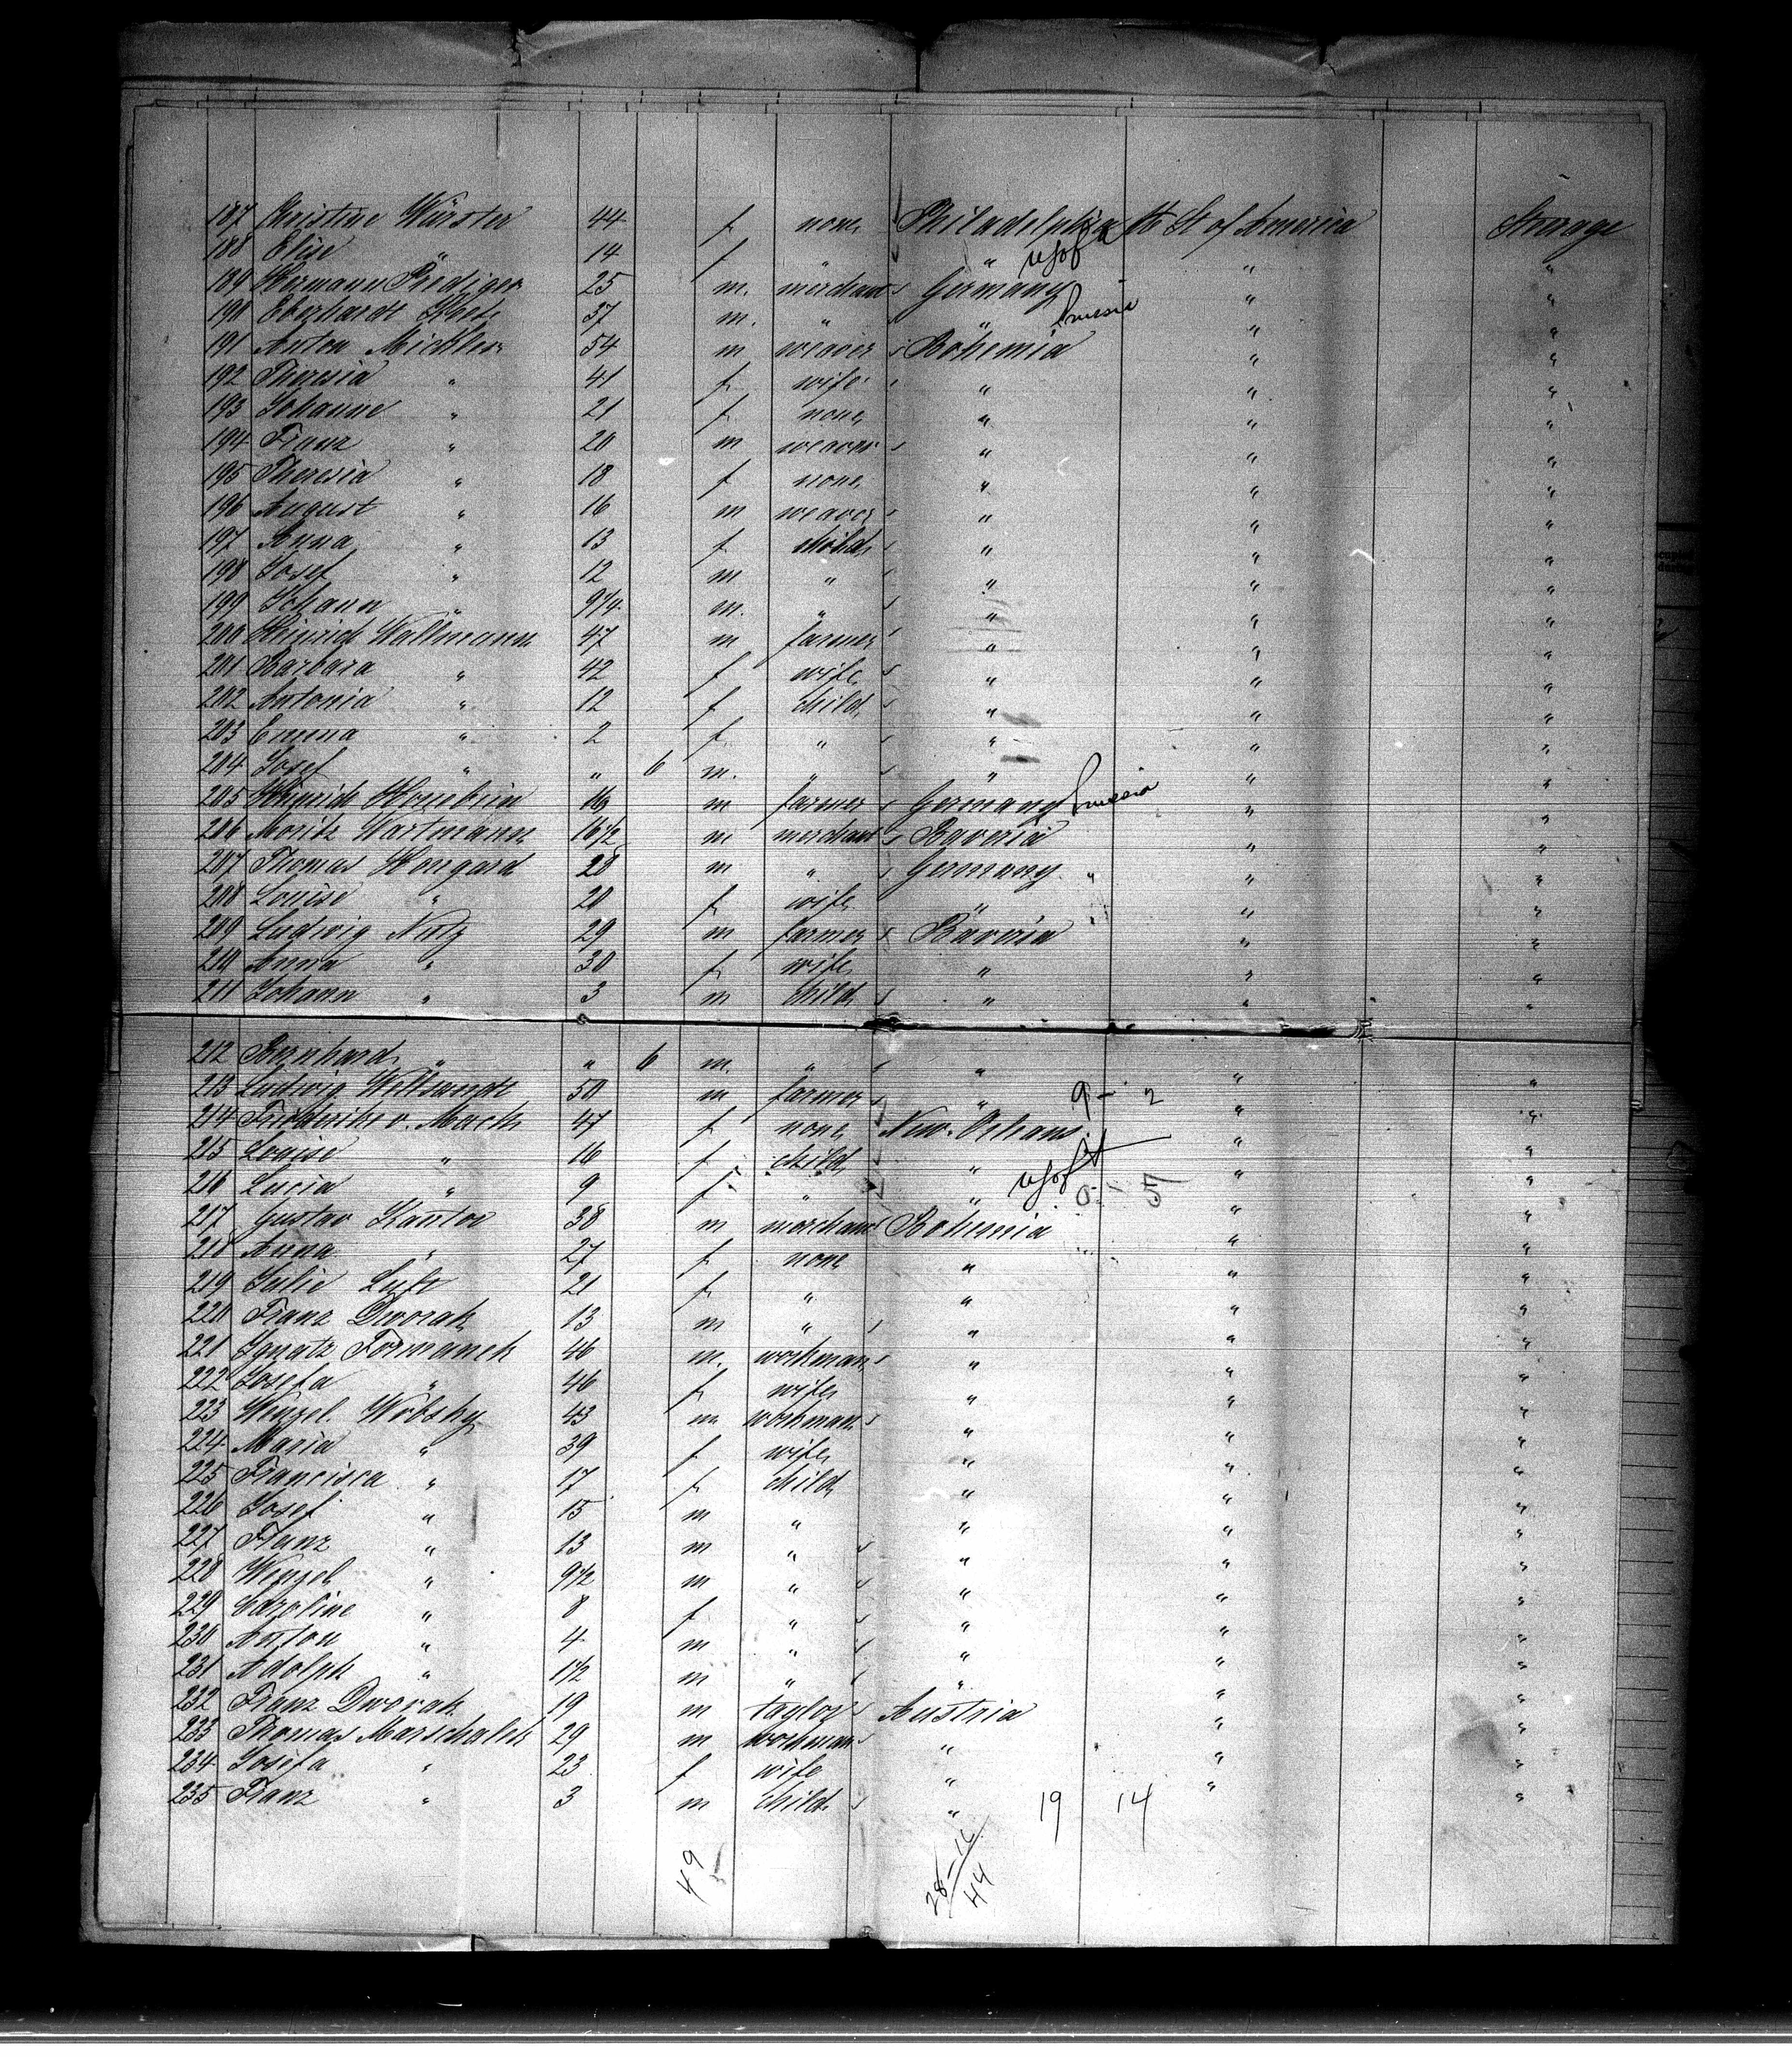 187 Christine Würster 44 f none Philadelphia Ut St of America Steerage
188 Elise " 14 f " " U S of A " "
189 Hermann Rediger 25 m. merchant Germany " "
190 Eberhardt 37 m. " " Prussia " "
191 Anton Michler 54 m weaver Bohemia " "
192 Theresia " 41 f wife " " "
193 Johanne " 21 f none " " "
194 Franz " 20 m weaver " " "
195 Theresia " 18 f none " " "
196 August " 16 m weaver " " "
197 Anna " 13 f child " " "
198 Josef " 12 m " " " "
199 Johann " 9 1/4 m. " " " "
200 Heinrich Wallmann 47 m farmer " " "
201 Barbara " 42 f wife " " "
202 Antonia " 12 f child " " "
203 Emma " 2 f " " " "
204 Josef " " 6 m. " " " "
205 Heinrich 16 m farmer Germany Prussia " "
206 Moritz Wartmann 16 1/2 m merchant Bavaria " "
207 Thomas Hongard 28 m " Germany " " "
208 Louise " 20 f wife " " " "
209 Ludwig Nutz 29 m farmer Bavaria " "
210 Anna " 30 f wife " " "
211 Johann " 3 m child " " "
212 Bernhard " " 6 m. " " " "
213 Ludwig 50 m farmer " 9 - 2 " "
214 Friederike v. Mach 47 f none New Orleans " "
215 Louise " 16 f child " " "
216 Lucia " 9 f " " U S of A 0 - 5 " "
217 Gustav Kantor 38 m merchant Bohemia " "
218 Anna " 27 f none " " "
219 Julie 21 f " " " "
220 Franz Dworak 13 m " " " "
221 Ignatz Formanek 46 m. workman " " "
222 Josefa " 46 f wife " " "
223 Wenzel Wobsky 43 m workman " " "
224 Maria " 39 f wife " " "
225 Francisca " 17 f child " " "
226 Josef " 15 m " " " "
227 Franz " 13 m " " " "
228 Wenzel " 9 1/2 m " " " "
229 Caroline " 8 f " " " "
230 Anton " 4 m " " " "
231 Adolph " 1 1/2 m " " " "
232 Franz Dworak 19 m taylor Austria " "
233 Thomas Marschalek 29 m workman " " "
234 Josefa " 23 f wife " " "
235 Franz " 3 m child " 19 14 "
49 28-16
5 44